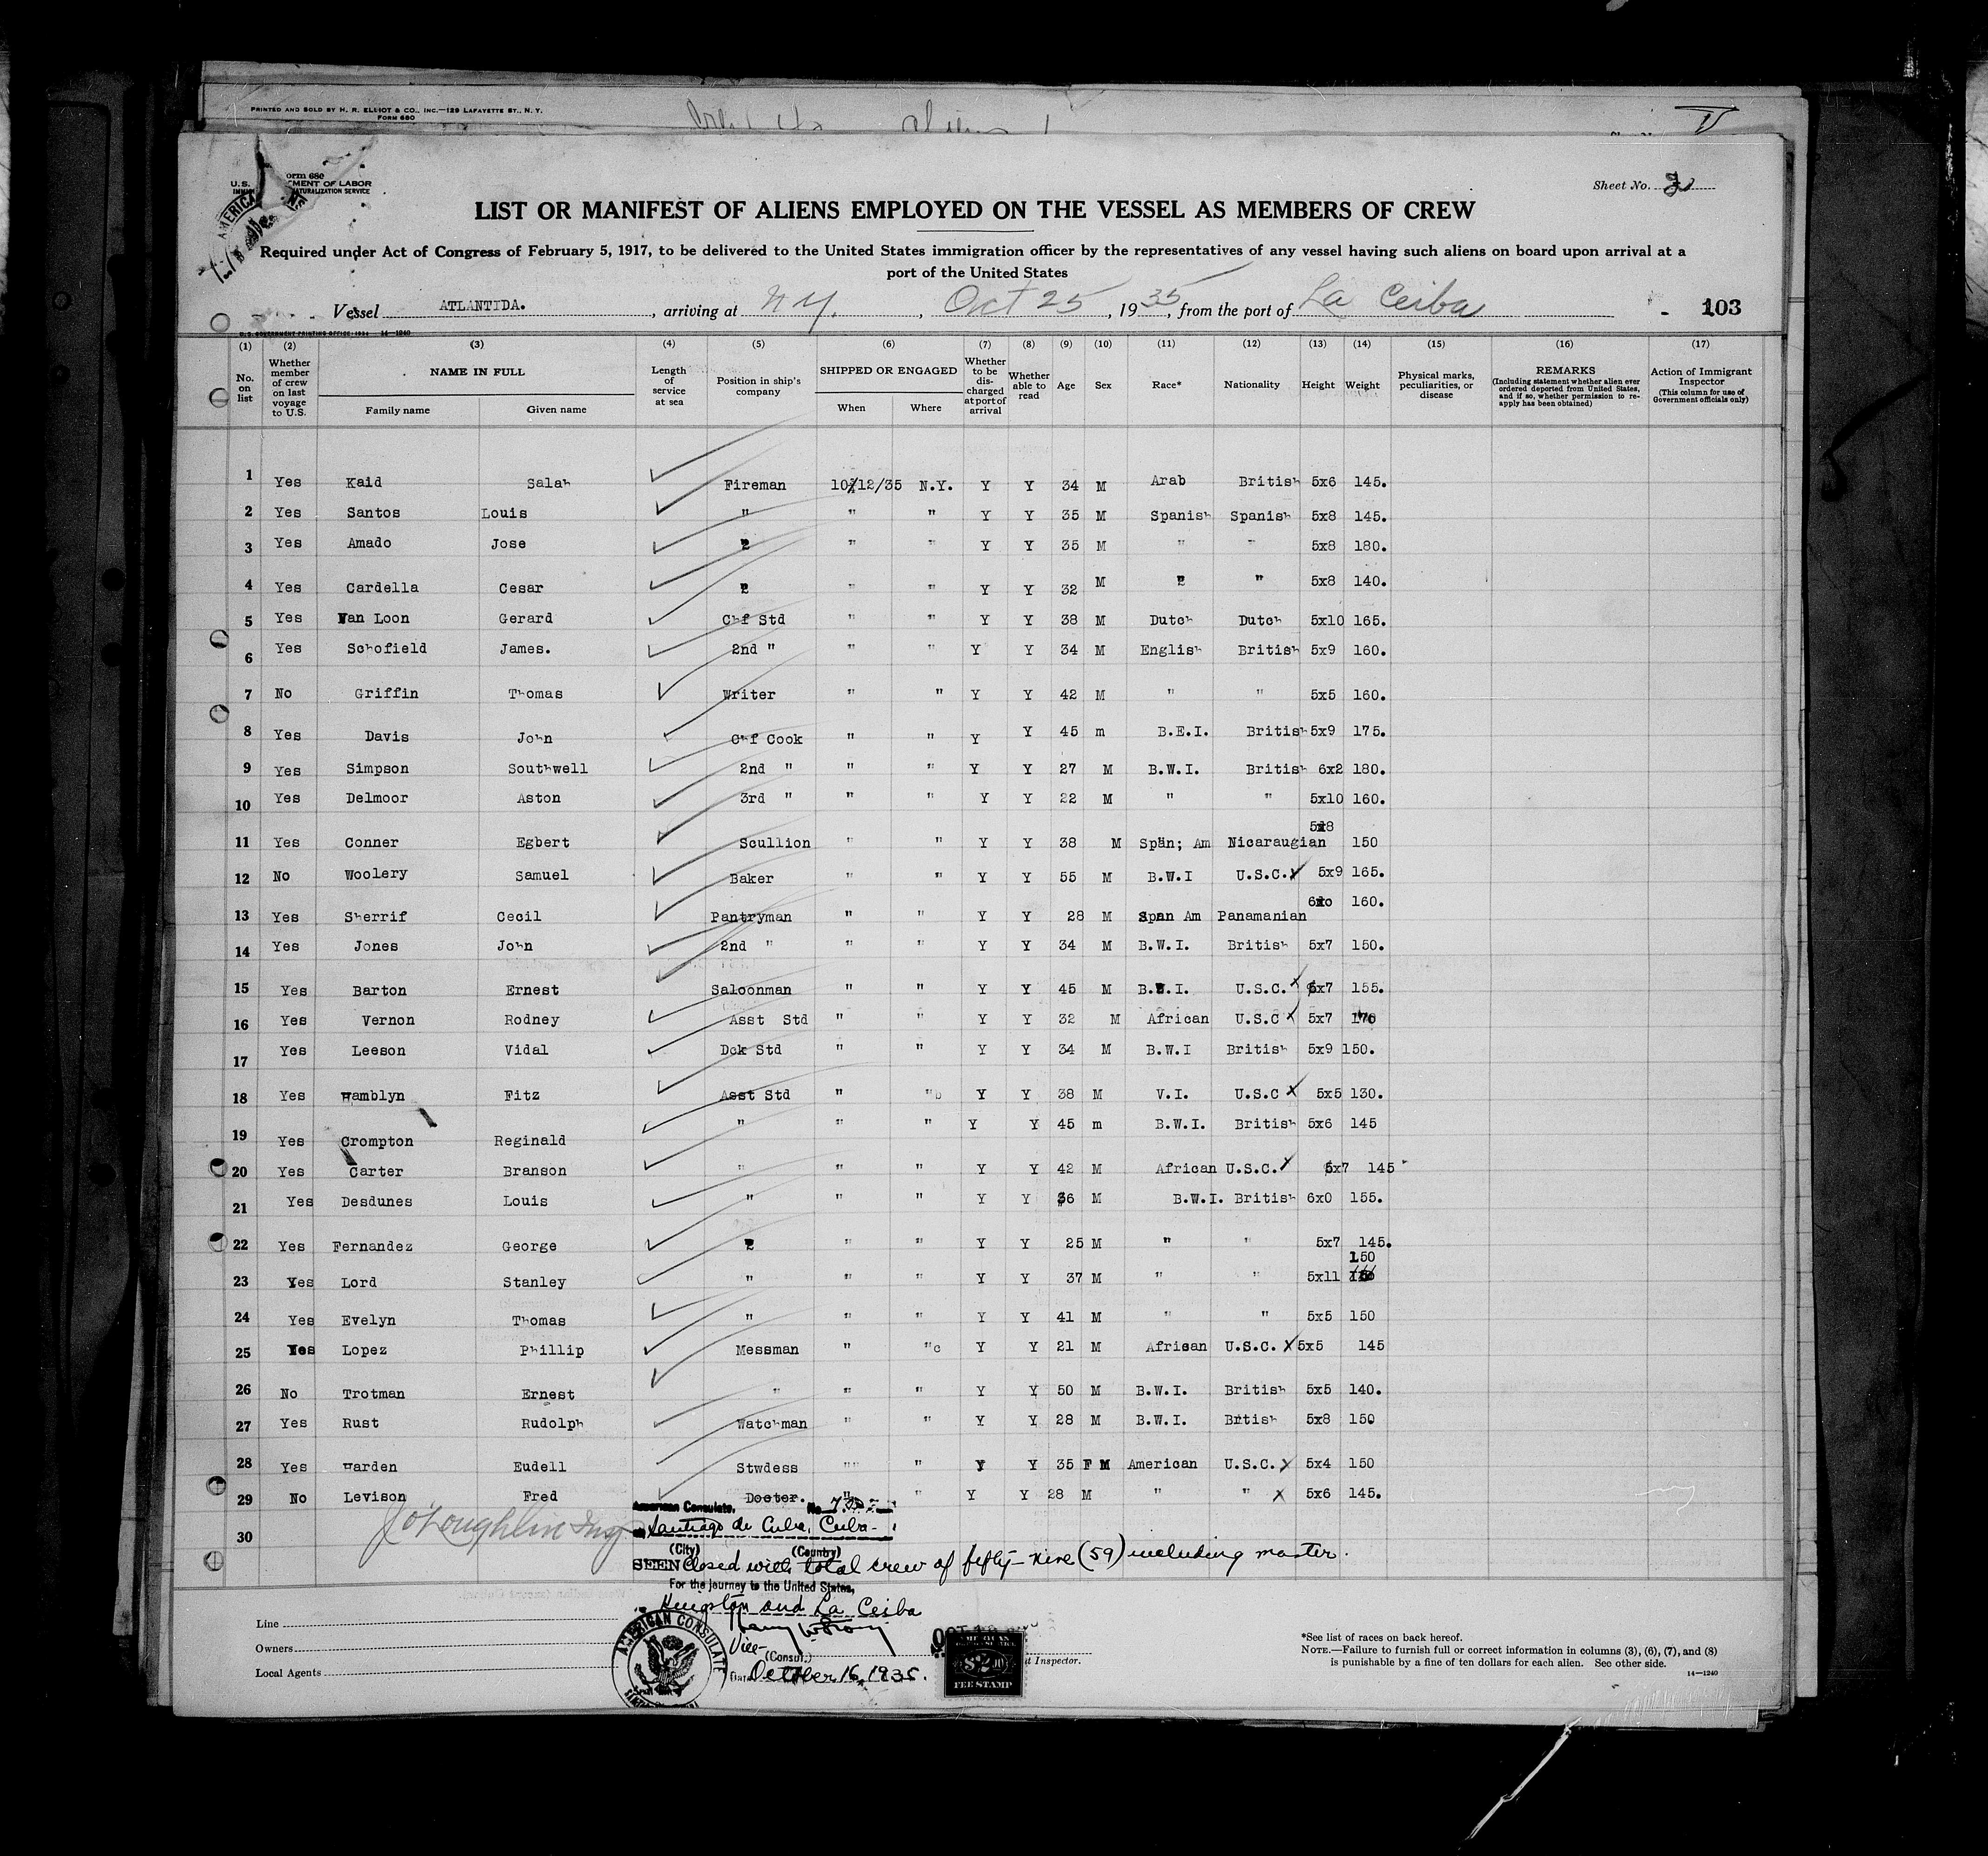 PRINTED AND SOLD BY H. R. ELLIOT & CO., INC.—129 LAFAYETTE ST., N. Y.
FORM 680
orm 680
U.S. MENT OF LABOR
IMMI NATURALIZATION SERVICE
AMERICA
Sheet No. 2
LIST OR MANIFEST OF ALIENS EMPLOYED ON THE VESSEL AS MEMBERS OF CREW
Required under Act of Congress of February 5, 1917, to be delivered to the United States immigration officer by the representatives of any vessel having such aliens on board upon arrival at a
port of the United States
Vessel ATLANTIDA. , arriving at N.Y. , Oct 25 , 1935, from the port of La Ceiba - 103
U.S. GOVERNMENT PRINTING OFFICE: 1934 14—1240
(1) (2) (3) (4) (5) (6) (7) (8) (9) (10) (11) (12) (13) (14) (15) (16) (17)
No. on list
Whether member of crew on last voyage to U.S.
NAME IN FULL
Family name Given name
Length of service at sea
Position in ship's company
SHIPPED OR ENGAGED
When Where
Whether to be discharged at port of arrival
Whether able to read
Age
Sex
Race*
Nationality
Height
Weight
Physical marks, peculiarities, or disease
REMARKS
(Including statement whether alien ever ordered deported from United States, and if so, whether permission to re-apply has been obtained)
Action of Immigrant Inspector
(This column for use of Government officials only)
1 Yes Kaid Salah Fireman 10/12/35 N.Y. Y Y 34 M Arab British 5x6 145.
2 Yes Santos Louis " " " Y Y 35 M Spanish Spanish 5x8 145.
3 Yes Amado Jose " " " Y Y 35 M " " 5x8 180.
4 Yes Cardella Cesar " " " Y Y 32 M " " 5x8 140.
5 Yes Van Loon Gerard Chf Std " " Y Y 38 M Dutch Dutch 5x10 165.
6 Yes Schofield James. 2nd " " " Y Y 34 M English British 5x9 160.
7 No Griffin Thomas Writer " " Y Y 42 M " " 5x5 160.
8 Yes Davis John Chf Cook " " Y Y 45 m B.E.I. British 5x9 175.
9 Yes Simpson Southwell 2nd " " " Y Y 27 M B.W.I. British 6x2 180.
10 Yes Delmoor Aston 3rd " " " Y Y 22 M " " 5x10 160.
11 Yes Conner Egbert Scullion " " Y Y 38 M Span; Am Nicaraugian 5x8 150
12 No Woolery Samuel Baker " " Y Y 55 M B.W.I U.S.C. x 5x9 165.
13 Yes Sherrif Cecil Pantryman " " Y Y 28 M Span Am Panamanian 6xo 160.
14 Yes Jones John 2nd " " " Y Y 34 M B.W.I. British 5x7 150.
15 Yes Barton Ernest Saloonman " " Y Y 45 M B.W.I. U.S.C. x 5x7 155.
16 Yes Vernon Rodney Asst Std " " Y Y 32 M African U.S.C x 5x7 170
17 Yes Leeson Vidal Dck Std " " Y Y 34 M B.W.I British 5x9 150.
18 Yes Hamblyn Fitz Asst Std " " Y Y 38 M V.I. U.S.C x 5x5 130.
19 Yes Crompton Reginald " " " Y Y 45 m B.W.I. British 5x6 145
20 Yes Carter Branson " " " Y Y 42 M African U.S.C. x 5x7 145
21 Yes Desdunes Louis " " " Y Y 36 M B.W.I. British 6x0 155.
22 Yes Fernandez George " " " Y Y 25 M " " 5x7 145.
23 Yes Lord Stanley " " " Y Y 37 M " " 5x11 150
24 Yes Evelyn Thomas " " " Y Y 41 M " " 5x5 150
25 Yes Lopez Phillip Messman " "c Y Y 21 M African U.S.C. x 5x5 145
26 No Trotman Ernest " " " Y Y 50 M B.W.I. British 5x5 140.
27 Yes Rust Rudolph Watchman " " Y Y 28 M B.W.I. British 5x8 150
28 Yes Harden Eudell Stwdess "" " Y Y 35 F M American U.S.C. x 5x4 150
29 No Levison Fred Docter. " " Y Y 28 M " " x 5x6 145.
30
J O'Loughlin Insp
American Consulate, No.
Santiago de Cuba, Cuba
(City) (Country)
SEEN Closed with total crew of fifty-nine (59) including master.
For the journey to the United States,
Kingston and La Ceiba
Vice-
(Consul.)
Date October 16, 1935.
AMERICAN CONSULATE
$2.00
FEE STAMP
t Inspector.
Line
Owners
Local Agents
*See list of races on back hereof.
NOTE.—Failure to furnish full or correct information in columns (3), (6), (7), and (8)
is punishable by a fine of ten dollars for each alien. See other side.
14—1240